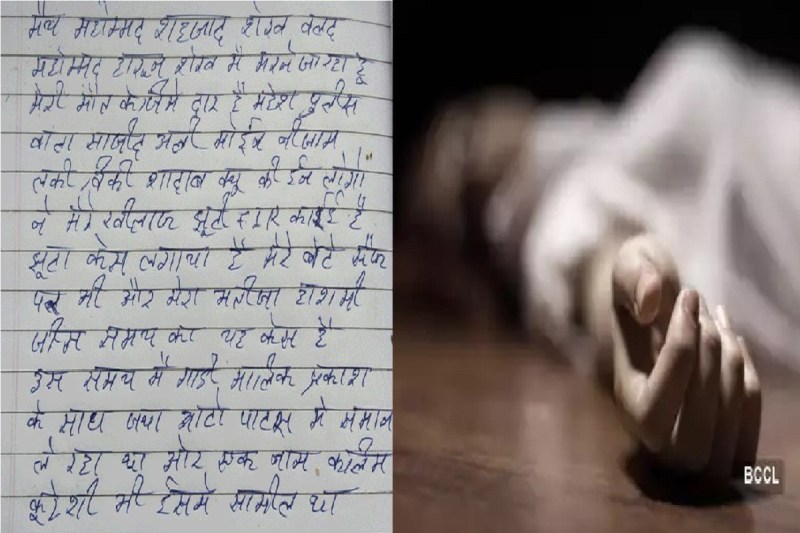 मैय महोम्मद शहजाद शेख वलद
महोम्मद हारून शेख मै मरने जा रहा हू
मेरी मौत के जीमे दार है महेश पुलीस
वाला माजीद अली मोईन नीजाम
लकी विकी शादाब क्यु की ईन लोगो
ने मेरे खीलाफ झुटी FIR काई है
झूटा केस लगाया है मेरे बेटे
पर भी और मेरा भतीजा हाशमी
जीस समय का यह केस है
इस समय मै गाडी मालिक प्रकाश
के साथ जया ओटो पाटस मे समान
ले रहा था ओर एक नाम कलीम
कुरेशी भी ईसमे सामील था
BCCL